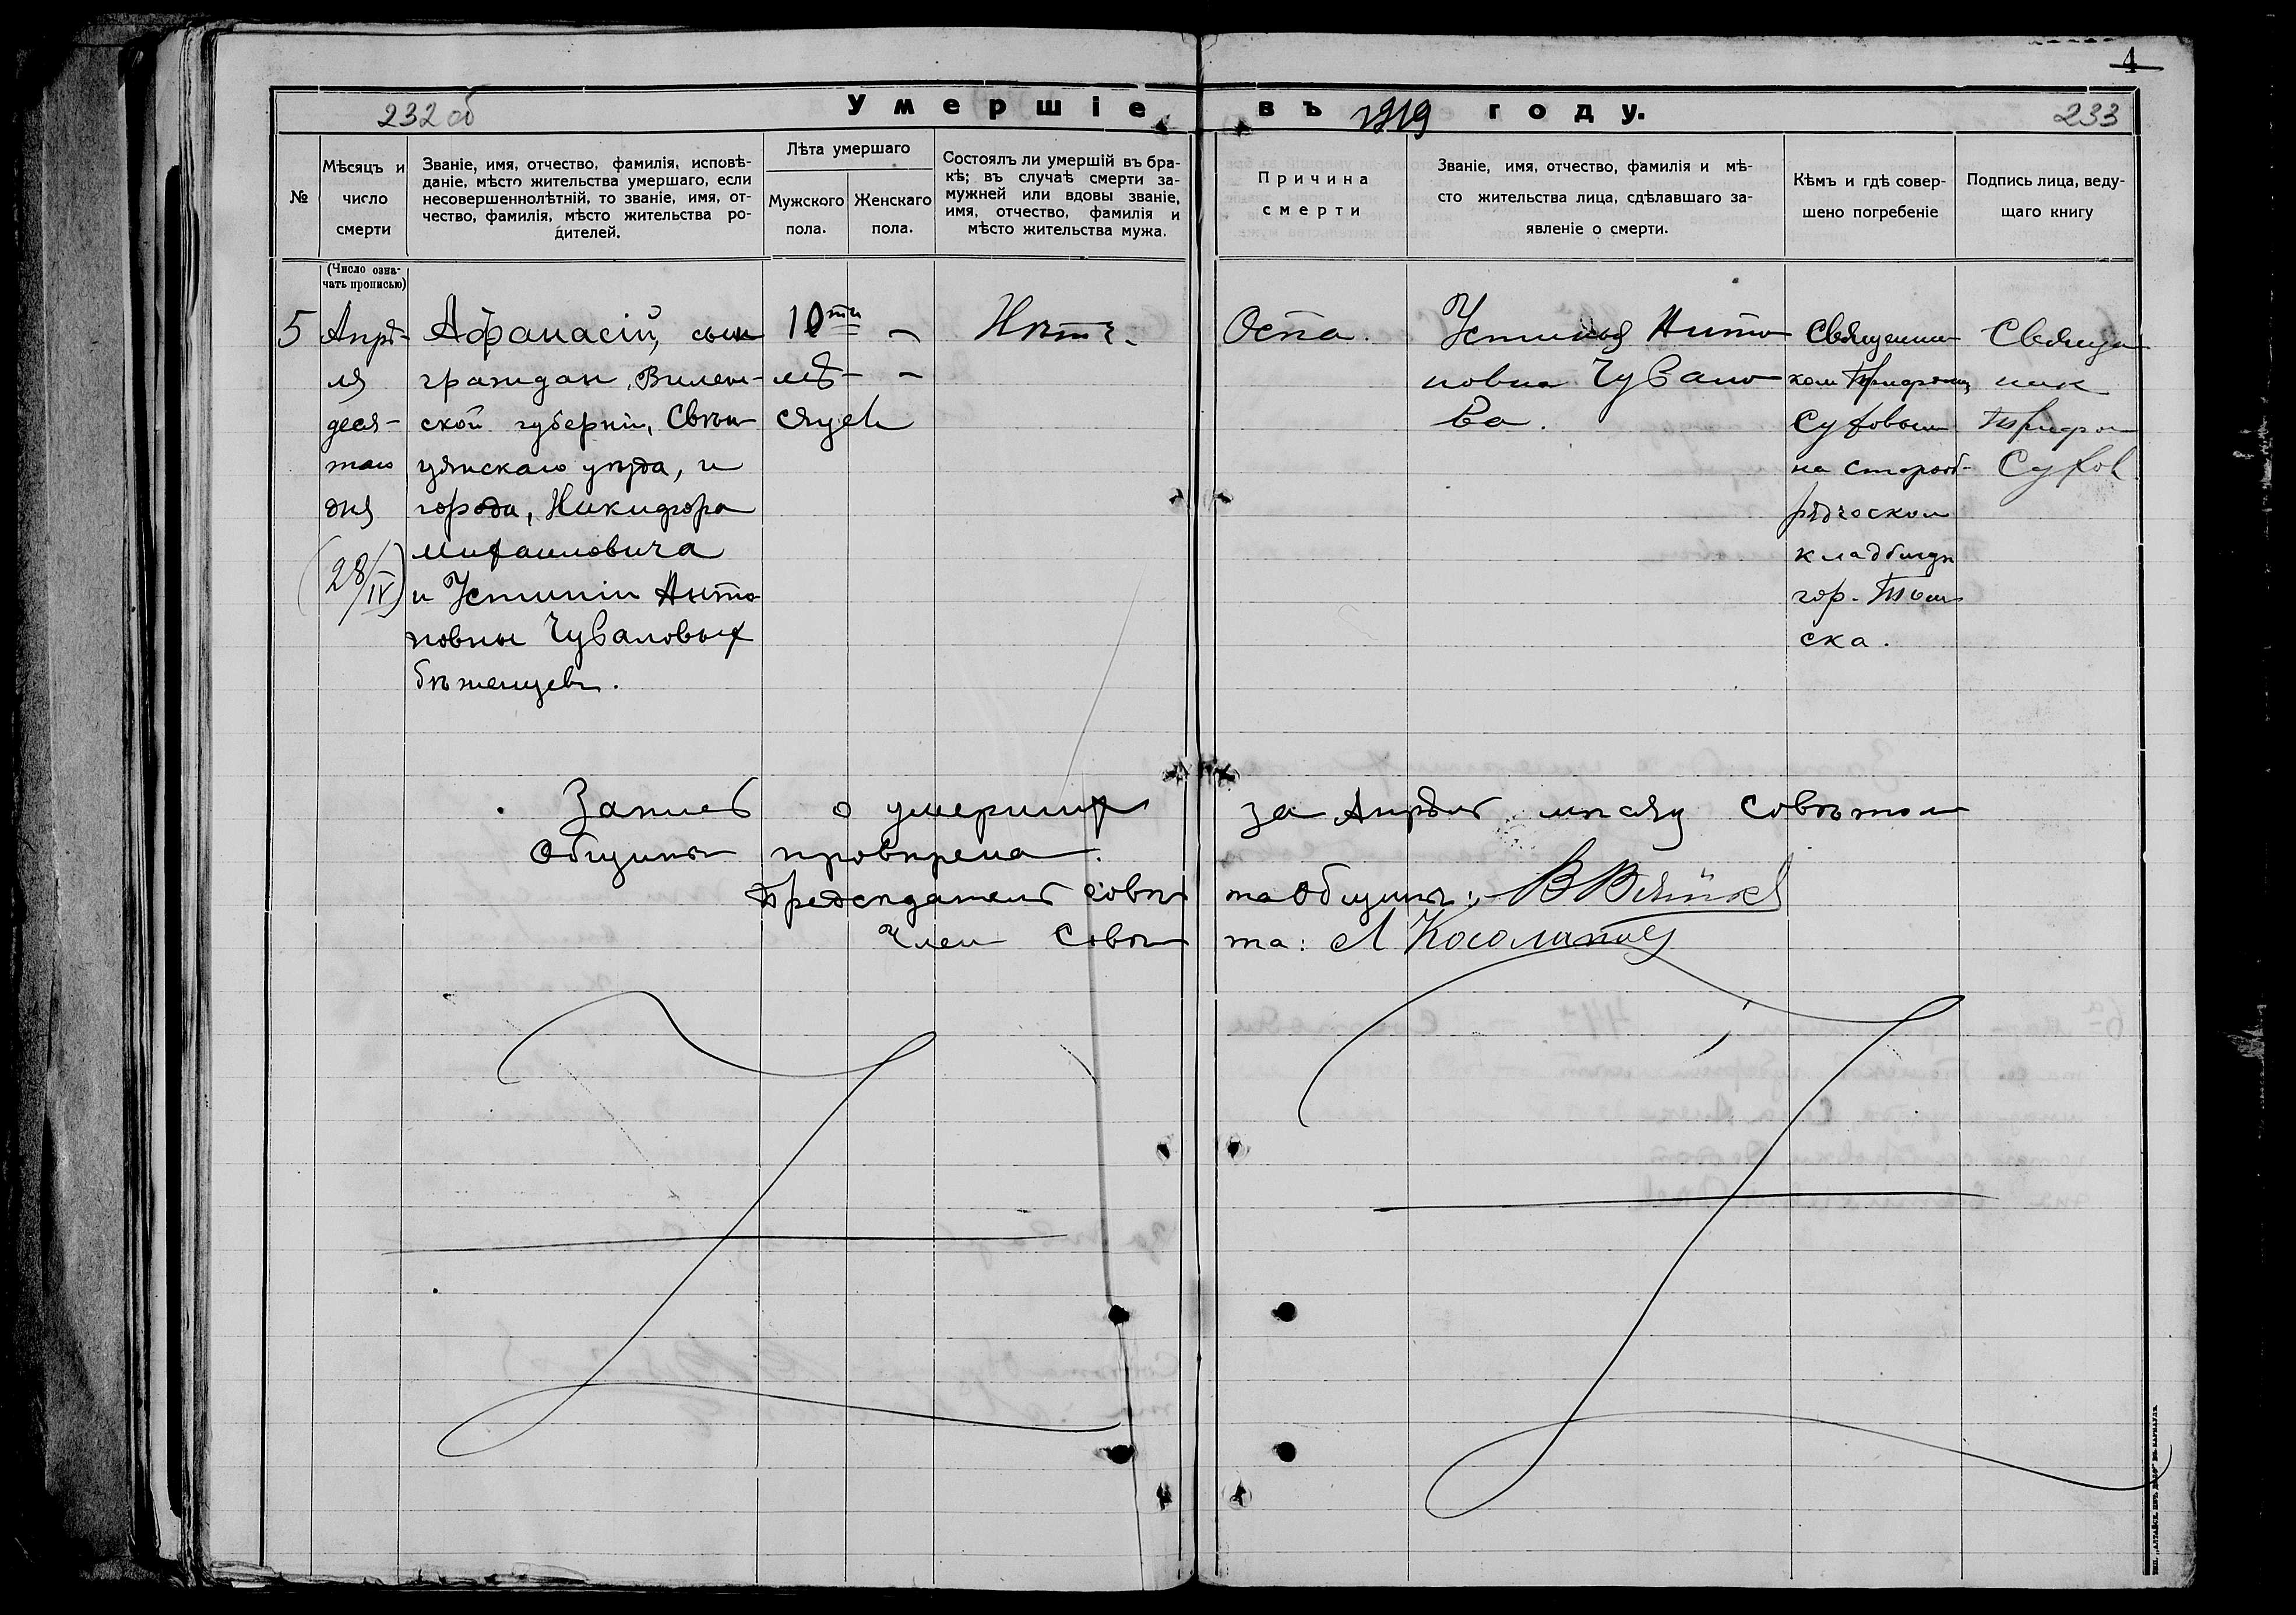 4
232 об
Умершіе въ 1919 году.
233
№
Мѣсяцъ и
число
смерти
Званіе, имя, отчество, фамилія, исповѣ-
даніе, мѣсто жительства умершаго, если
несовершеннолѣтній, то званіе, имя, от-
чество, фамилія, мѣсто жительства ро-
дителей.
Лѣта умершаго
Мужского
пола.
Женскаго
пола.
Состоялъ ли умершій въ бра-
кѣ; въ случаѣ смерти за-
мужней или вдовы званіе,
имя, отчество, фамилія и
мѣсто жительства мужа.
Причина
смерти
Званіе, имя, отчество, фамилія и мѣ-
сто жительства лица, сдѣлавшаго за-
явленіе о смерти.
Кѣмъ и гдѣ совер-
шено погребеніе
Подпись лица, веду-
щаго книгу
(Число озна-
чать прописью)
5
Апрѣ-
ля
деся-
таго
дня
(28/IV)
Афанасій, сын
граждан, Вилен-
ской губерніи, Свѣн
цянскаго уѣзда, и
города, Никифора
Михаиловича
и Устиніи Анто
новны Чуваловых
бѣженцев.
10ти
мѣ-
сяцев
Нѣтъ.
Оспа.
Устинья Анто
новна Чувало
ва.
Священни
ком Трифоном
Суховым
на старооб-
рядческом
кладбищѣ
гор. Том
ска.
Священ
ник
Трифон
Сухов
Запись о умерших за Апрѣль мѣсяц Совѣтом
Общины провѣрена.
Предсѣдатель совѣ та Общины:
Член Совѣ та: Л Косолапов
ТИП. „АЛТАЙСК. ПЕЧ. ДѢЛО" ВЪ БАРНАУЛѢ.